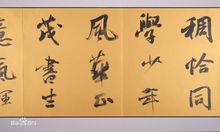 稠恰同
學少年
風華正
茂書生
意氣揮